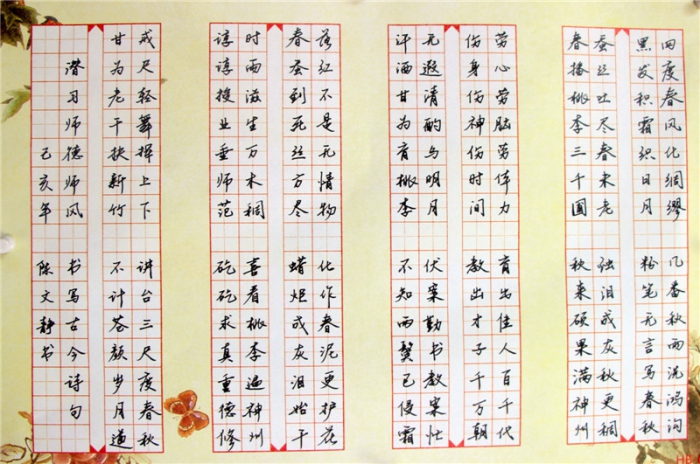 四度春风化绸缪 几番秋雨洗鸿沟
黑发积霜织日月 粉笔无言写春秋
蚕丝吐尽春未老 烛泪成灰秋更稠
春播桃李三千圃 秋来硕果满神州
劳心劳脑劳体力 育出佳人百千代
伤身伤神伤时间 教出才子千万朝
无遐清酌与明月 伏案勤书教案忙
汗洒甘为育桃李 不知两鬓已侵霜
落红不是无情物 化作春泥更护花
春蚕到死丝方尽 蜡炬成灰泪始干
时雨滋生万木稠 喜看桃李遍神州
谆谆授业垂师范 矻矻求真重德修
戒尺轻舞挥上下 讲台三尺度春秋
甘为老干扶新竹 不计苍颜岁月遒
潜习师德师风 书写古今诗句
己亥年 陈文静书